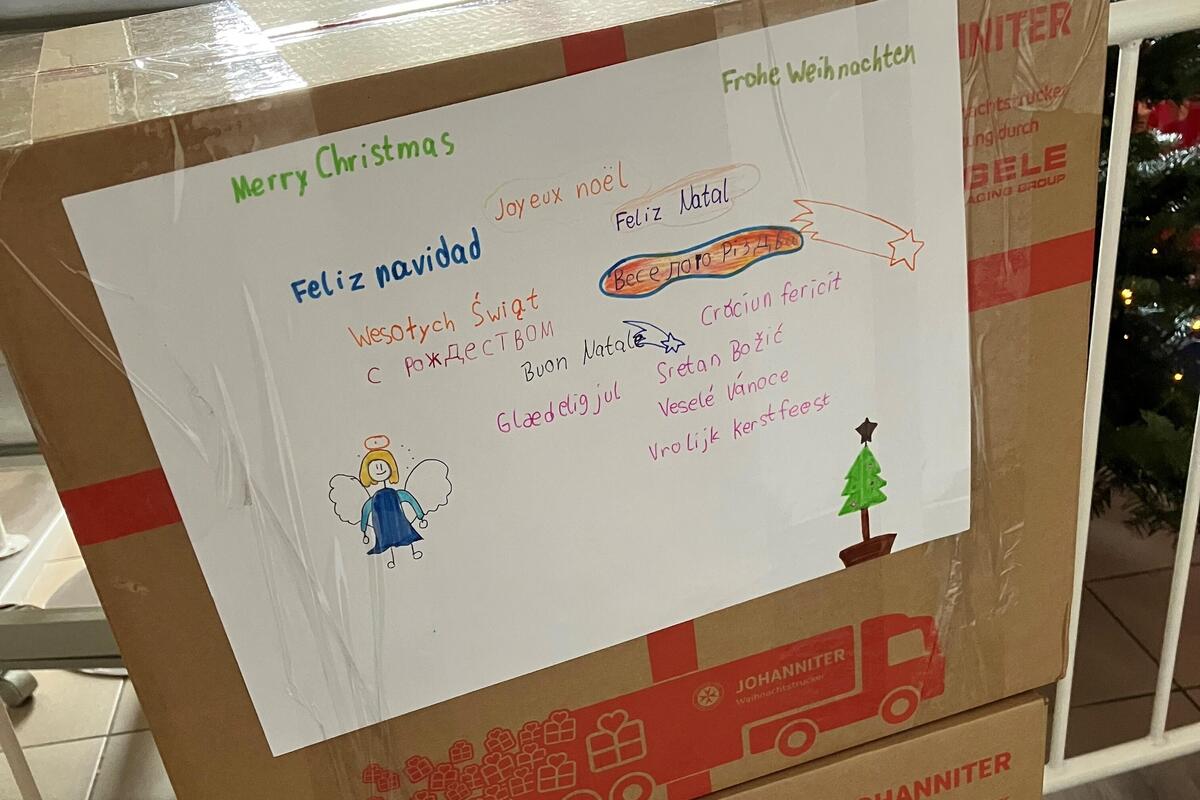 Frohe Weihnachten
Merry Christmas
Joyeux noël
Feliz Natal
Feliz navidad
Веселого Різдва
Wesołych Świąt
Crăciun fericit
с рождеством
Buon Natale
Sretan Božić
Glædelig jul
Veselé Vánoce
Vrolijk kerstfeest
INITER
achtstrucker
ung durch
SELE
AGING GROUP
JOHANNITER
Weihnachtstrucker
OHANNITER